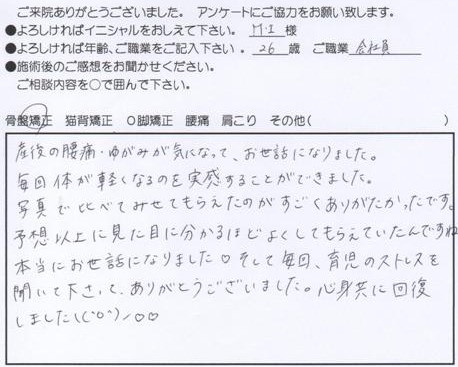 ご来院ありがとうございました。 アンケートにご協力をお願い致します。
●よろしければイニシャルをおしえて下さい。 M・I 様
●よろしければ年齢、ご職業をご記入下さい。 26 歳 ご職業 会社員
●施術後のご感想をお聞かせください。
ご相談内容を○で囲んで下さい。
骨盤矯正 猫背矯正 O脚矯正 腰痛 肩こり その他( )
産後の腰痛・ゆがみが気になって、お世話になりました。
毎回体が軽くなるのを実感することができました。
写真で比べてみせてもらえたのがすごくありがたかったです。
予想以上に見た目に分かるほどよくしてもらえていたんですね
本当にお世話になりました♡そして毎回、育児のストレスを
聞いて下さって、ありがとうございました。心身共に回復
しました\(^o^)/♡♡